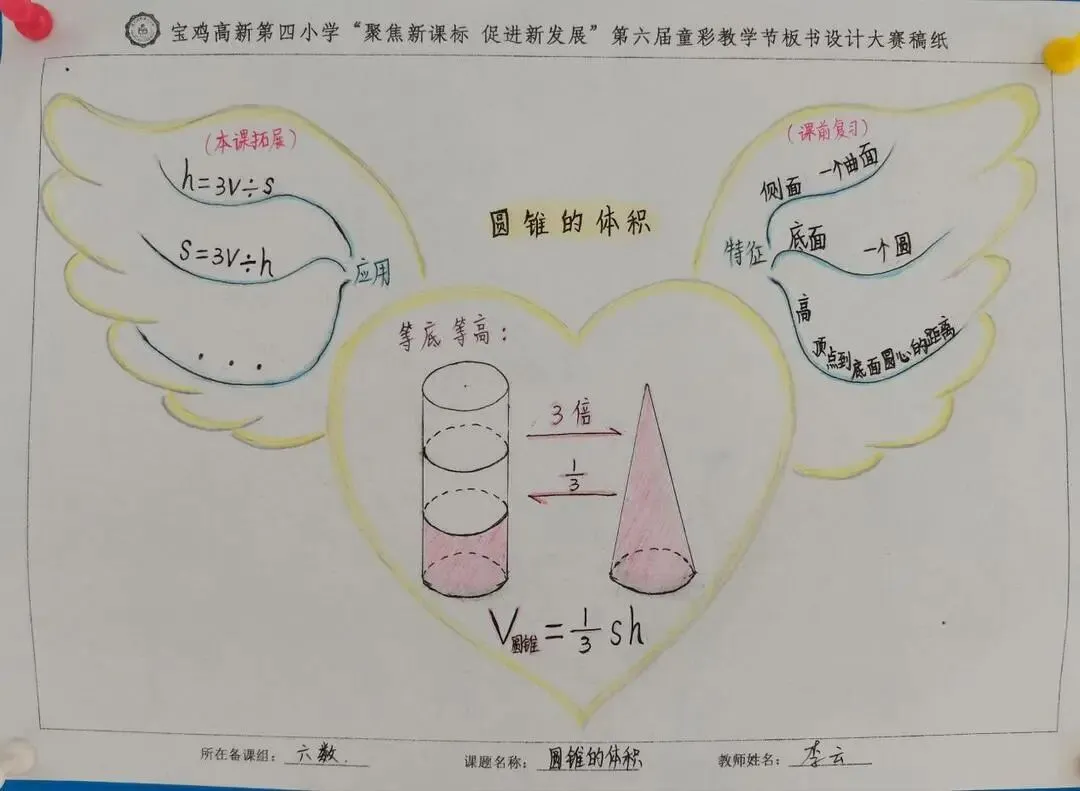 宝鸡高新第四小学“聚焦新课标 促进新发展”第六届童彩教学节板书设计大赛稿纸
圆锥的体积
(本课拓展)
h=3V÷s
s=3V÷h
...
应用
(课前复习)
特征
侧面 一个曲面
底面 一个圆
高
顶点到底面圆心的距离
等底等高:
3倍
1/3
V圆锥=1/3 sh
所在备课组: 六数
课题名称: 圆锥的体积
教师姓名: 李云